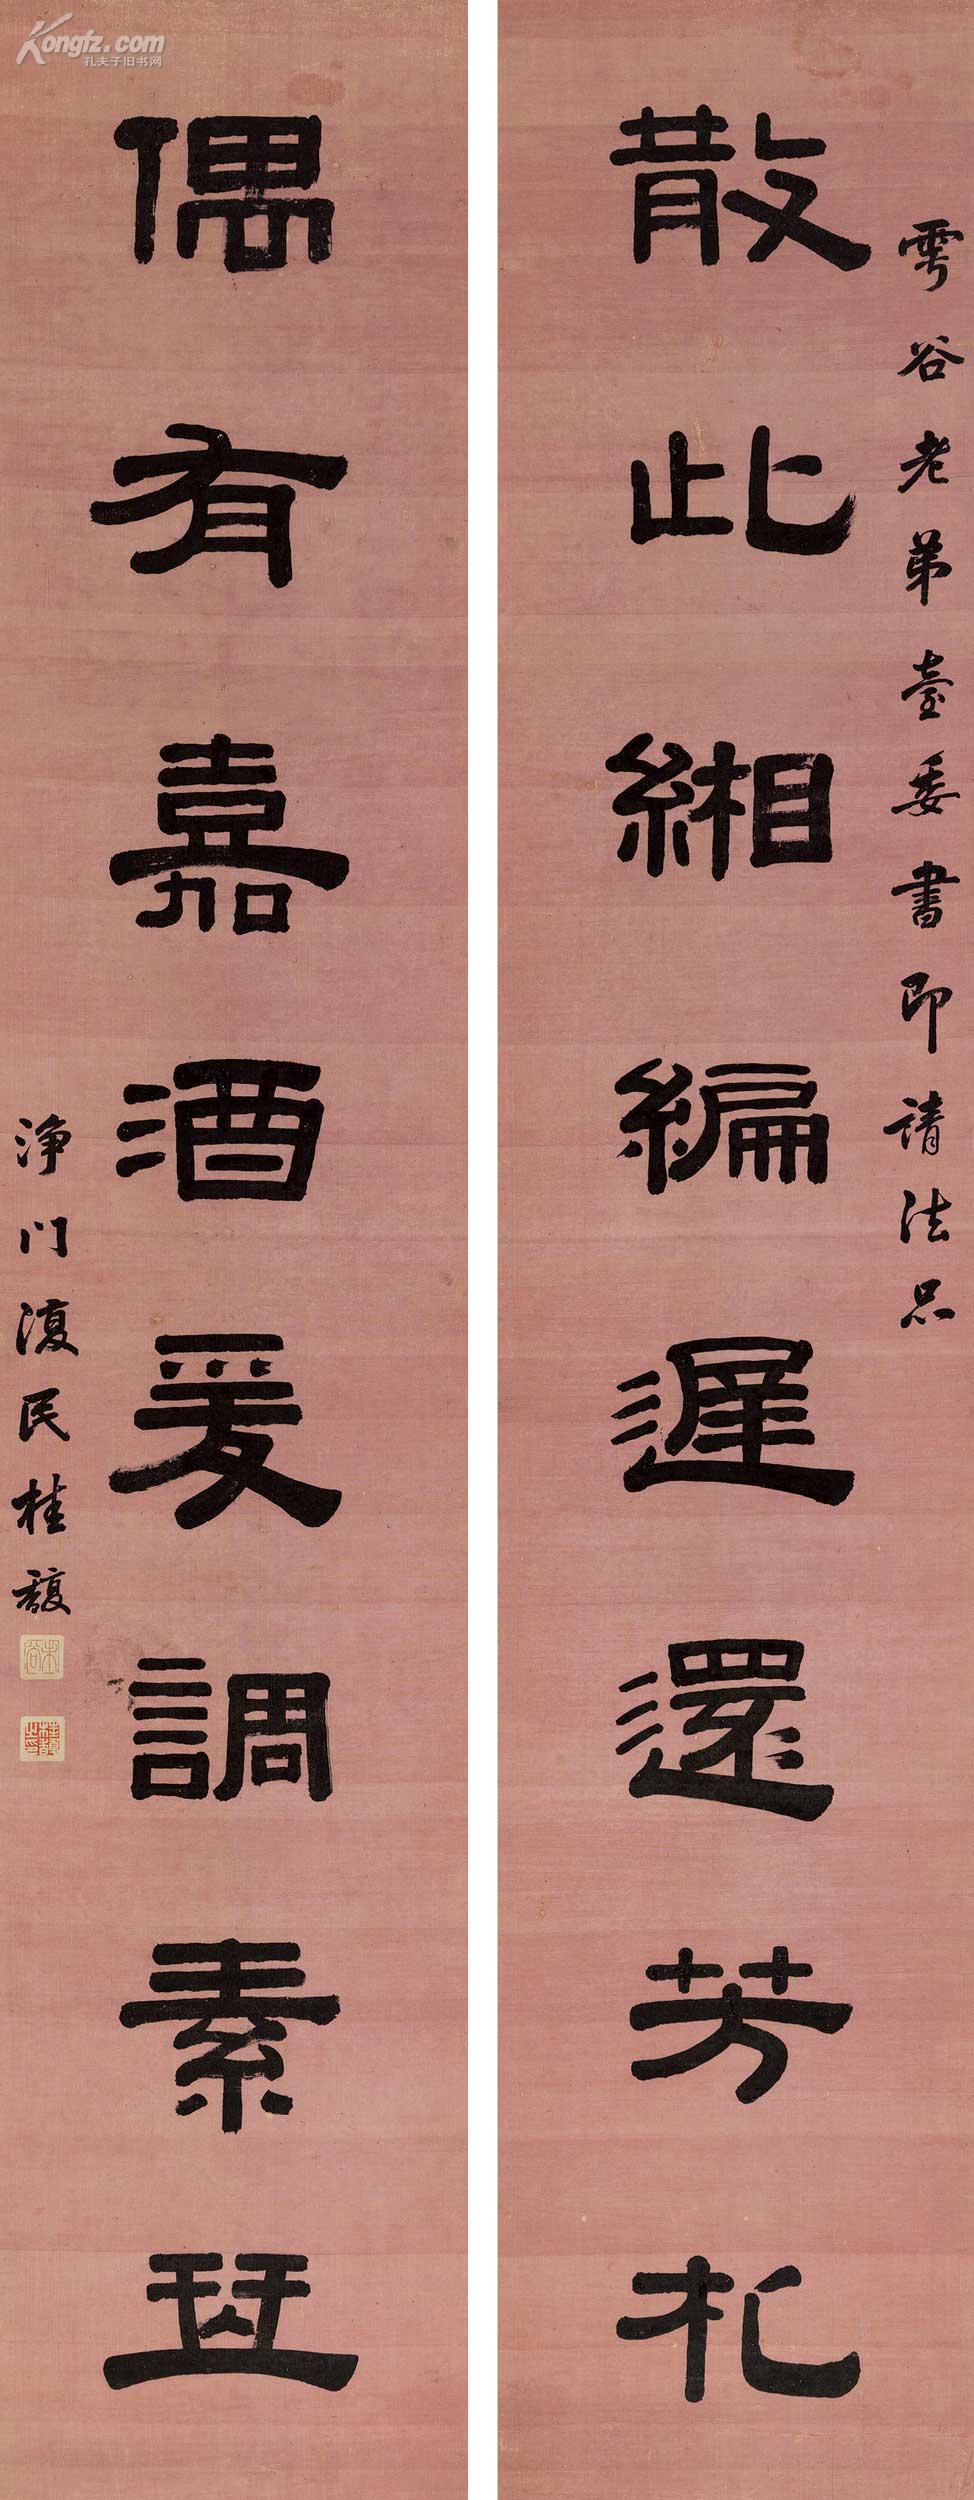 Kongfz.com
孔夫子旧书网
雲谷老弟臺委書即請法品
散此緗編遲還芳札
偶有嘉酒爰調素琴
淨門復民桂馥
未谷
桂馥之印